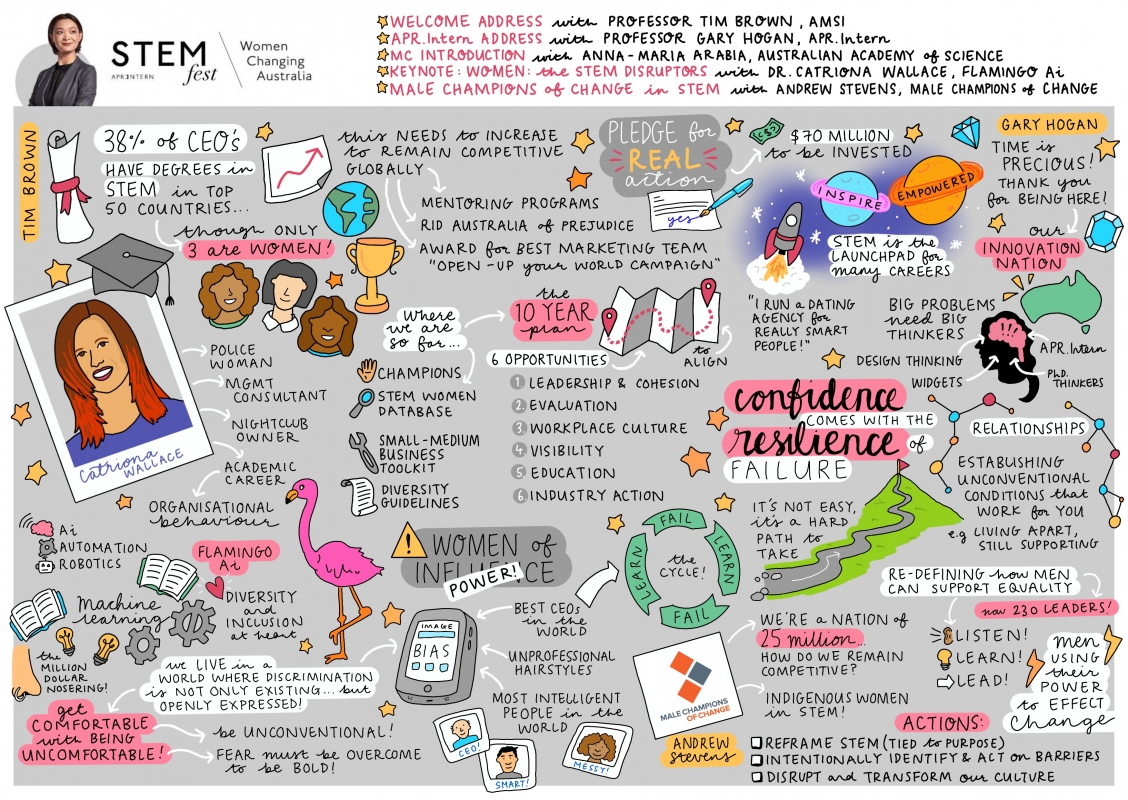 STEM
fest
APR.INTERN
Women
Changing
Australia
WELCOME ADDRESS with PROFESSOR TIM BROWN, AMSI
APR.Intern ADDRESS with PROFESSOR GARY HOGAN, APR.Intern
MC INTRODUCTION with ANNA-MARIA ARABIA, AUSTRALIAN ACADEMY of SCIENCE
KEYNOTE: WOMEN: the STEM DISRUPTORS with DR. CATRIONA WALLACE, FLAMINGO Ai
MALE CHAMPIONS OF CHANGE in STEM with ANDREW STEVENS, MALE CHAMPIONS of CHANGE
TIM BROWN
38% of CEO's
HAVE DEGREES in
STEM in TOP
50 COUNTRIES...
though ONLY
3 are WOMEN!
this NEEDS to INCREASE
to REMAIN COMPETITIVE
GLOBALLY
MENTORING PROGRAMS
RID AUSTRALIA of PREJUDICE
AWARD for BEST MARKETING TEAM
"OPEN-UP your WORLD CAMPAIGN"
PLEDGE for
REAL
action
yes
$70 MILLION
to be INVESTED
INSPIRE
EMPOWERED
STEM is the
LAUNCHPAD for
many CAREERS
GARY HOGAN
TIME is
PRECIOUS!
THANK you
for BEING HERE!
our
INNOVATION
NATION
"I RUN a DATING
AGENCY for
REALLY SMART
PEOPLE!"
BIG PROBLEMS
need BIG
THINKERS
DESIGN THINKING
WIDGETS
APR.Intern
PhD.
THINKERS
Where
we are
so far...
CHAMPIONS
STEM WOMEN
DATABASE
SMALL-MEDIUM
BUSINESS
TOOLKIT
DIVERSITY
GUIDELINES
the
10 YEAR
plan
to
ALIGN
6 OPPORTUNITIES
1. LEADERSHIP & COHESION
2. EVALUATION
3. WORKPLACE CULTURE
4. VISIBILITY
5. EDUCATION
6. INDUSTRY ACTION
Catriona
WALLACE
POLICE
WOMAN
MGMT
CONSULTANT
NIGHTCLUB
OWNER
ACADEMIC
CAREER
ORGANISATIONAL
behaviour
Ai
AUTOMATION
ROBOTICS
FLAMINGO
Ai
Machine
learning
DIVERSITY
and
INCLUSION
at heart
the
MILLION
DOLLAR
NOSERING!
we LIVE in a
WORLD WHERE DISCRIMINATION
is NOT ONLY EXISTING... but
OPENLY EXPRESSED!
get
COMFORTABLE
with BEING
UNCOMFORTABLE!
be UNCONVENTIONAL!
FEAR must be OVERCOME
to be BOLD!
WOMEN of
INFLUENCE
POWER!
IMAGE
BIAS
BEST CEOs
in the
WORLD
UNPROFESSIONAL
HAIRSTYLES
MOST INTELLIGENT
PEOPLE in the
WORLD
CEO!
SMART!
MESSY!
FAIL
LEARN
FAIL
LEARN
the
CYCLE!
confidence
COMES WITH THE
resilience of
FAILURE
IT'S NOT EASY,
it's a HARD
PATH to
TAKE
RELATIONSHIPS
ESTABLISHING
UNCONVENTIONAL
CONDITIONS that
WORK for YOU
e.g LIVING APART,
STILL SUPPORTING
RE-DEFINING how MEN
CAN SUPPORT EQUALITY
now 230 LEADERS!
LISTEN!
LEARN!
LEAD!
MEN
USING
their
POWER
to EFFECT
Change
MALE CHAMPIONS
OF CHANGE
ANDREW
Stevens
WE'RE a NATION of
25 million...
HOW DO WE REMAIN
COMPETITIVE?
INDIGENOUS WOMEN
in STEM!
ACTIONS:
REFRAME STEM (TIED to PURPOSE)
INTENTIONALLY IDENTIFY & ACT on BARRIERS
DISRUPT and TRANSFORM our CULTURE